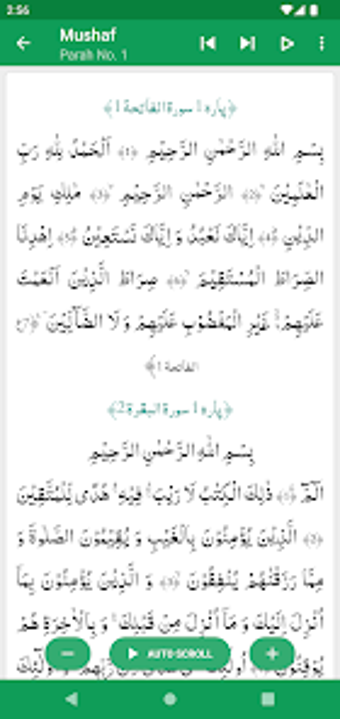 2:56
Mushaf
Parah No. 1
﴿پاره 1 سورة الفاتحة 1﴾
بِسۡمِ اللهِ الرَّحۡمٰنِ الرَّحِيۡمِ ﴿1﴾ اَلۡحَمۡدُ لِلّٰهِ رَبِّ
الۡعٰلَمِيۡنَۙ ﴿2﴾ الرَّحۡمٰنِ الرَّحِيۡمِۙ ﴿3﴾ مٰلِكِ يَوۡمِ
الدِّيۡنِؕ ﴿4﴾ اِيَّاكَ نَعۡبُدُ وَ اِيَّاكَ نَسۡتَعِيۡنُؕ ﴿5﴾ اِهۡدِنَا
الصِّرَاطَ الۡمُسۡتَقِيۡمَۙ ﴿6﴾ صِرَاطَ الَّذِيۡنَ اَنۡعَمۡتَ
عَلَيۡهِمۡ ۙ غَيۡرِ الۡمَغۡضُوۡبِ عَلَيۡهِمۡ وَ لَا الضَّآلِّيۡنَ ﴿7﴾
الفاتحة 1﴾
﴿پاره 1 سورة البقرة 2﴾
بِسۡمِ اللهِ الرَّحۡمٰنِ الرَّحِيۡمِ
الٓمّٓۚ ﴿1﴾ ذٰلِكَ الۡكِتٰبُ لَا رَيۡبَۛ فِيۡهِۛ هُدًى لِّلۡمُتَّقِيۡنَ
﴿2﴾ الَّذِيۡنَ يُؤۡمِنُوۡنَ بِالۡغَيۡبِ وَ يُقِيۡمُوۡنَ الصَّلٰوةَ وَ
مِمَّا رَزَقۡنٰهُمۡ يُنۡفِقُوۡنَ ﴿3﴾ وَ الَّذِيۡنَ يُؤۡمِنُوۡنَ بِمَآ
اُنۡزِلَ اِلَيۡكَ وَ مَاۤ اُنۡزِلَ مِنۡ قَبۡلِكَۚ وَ بِالۡاٰخِرَةِ هُمۡ
يُوۡقِنُوۡنَ اُولٰٓئِكَ رَّبِّهِمۡ وَ اُولٰٓئِكَ
AUTO SCROLL